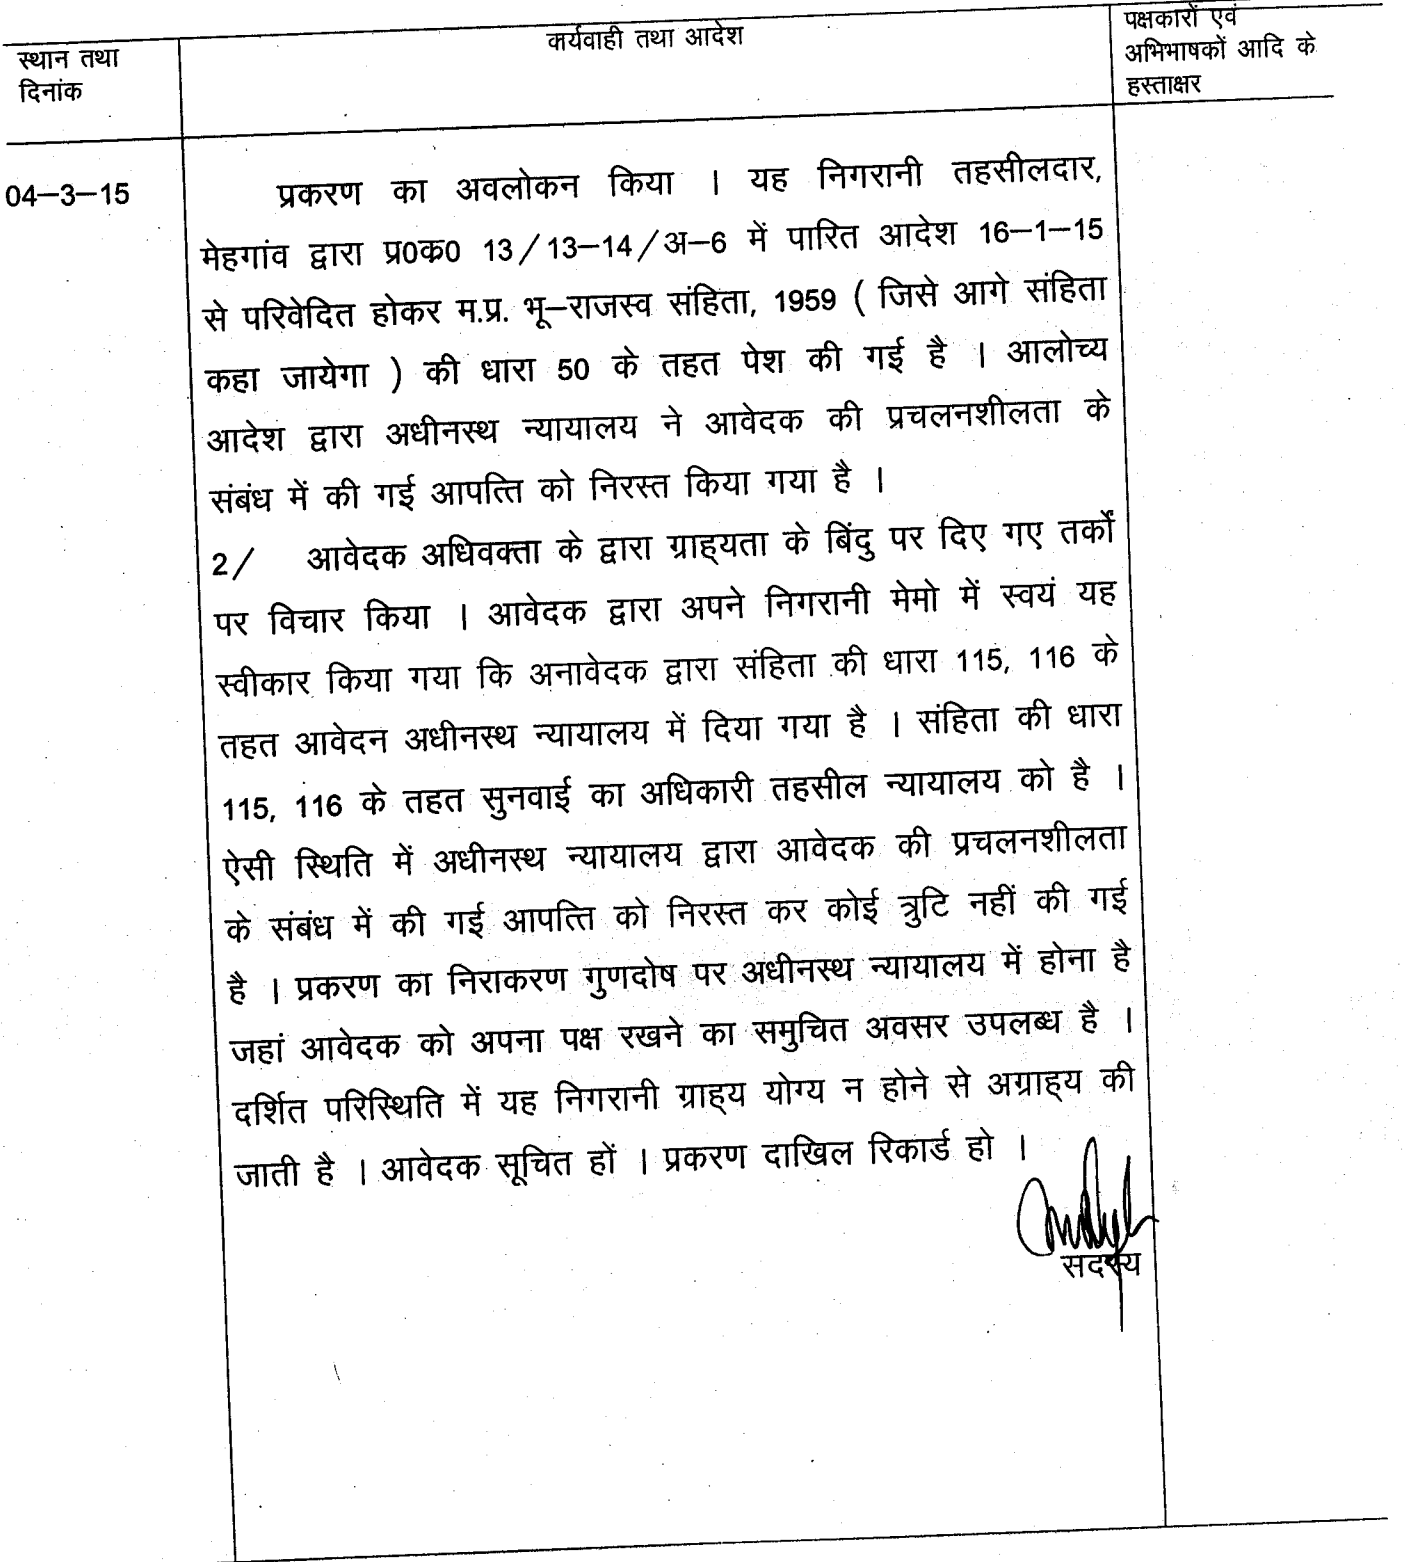 स्थान तथा
दिनांक
कार्यवाही तथा आदेश
पक्षकारों एवं
अभिभाषकों आदि के
हस्ताक्षर
04–3–15
प्रकरण का अवलोकन किया । यह निगरानी तहसीलदार,
मेहगांव द्वारा प्र0क0 13/13–14/अ–6 में पारित आदेश 16–1–15
से परिवेदित होकर म.प्र. भू–राजस्व संहिता, 1959 ( जिसे आगे संहिता
कहा जायेगा ) की धारा 50 के तहत पेश की गई है । आलोच्य
आदेश द्वारा अधीनस्थ न्यायालय ने आवेदक की प्रचलनशीलता के
संबंध में की गई आपत्ति को निरस्त किया गया है ।
2/ आवेदक अधिवक्ता के द्वारा ग्राह्यता के बिंदु पर दिए गए तर्कों
पर विचार किया । आवेदक द्वारा अपने निगरानी मेमो में स्वयं यह
स्वीकार किया गया कि अनावेदक द्वारा संहिता की धारा 115, 116 के
तहत आवेदन अधीनस्थ न्यायालय में दिया गया है । संहिता की धारा
115, 116 के तहत सुनवाई का अधिकारी तहसील न्यायालय को है ।
ऐसी स्थिति में अधीनस्थ न्यायालय द्वारा आवेदक की प्रचलनशीलता
के संबंध में की गई आपत्ति को निरस्त कर कोई त्रुटि नहीं की गई
है । प्रकरण का निराकरण गुणदोष पर अधीनस्थ न्यायालय में होना है
जहां आवेदक को अपना पक्ष रखने का समुचित अवसर उपलब्ध है ।
दर्शित परिस्थिति में यह निगरानी ग्राह्य योग्य न होने से अग्राह्य की
जाती है । आवेदक सूचित हों । प्रकरण दाखिल रिकार्ड हो ।
सदस्य